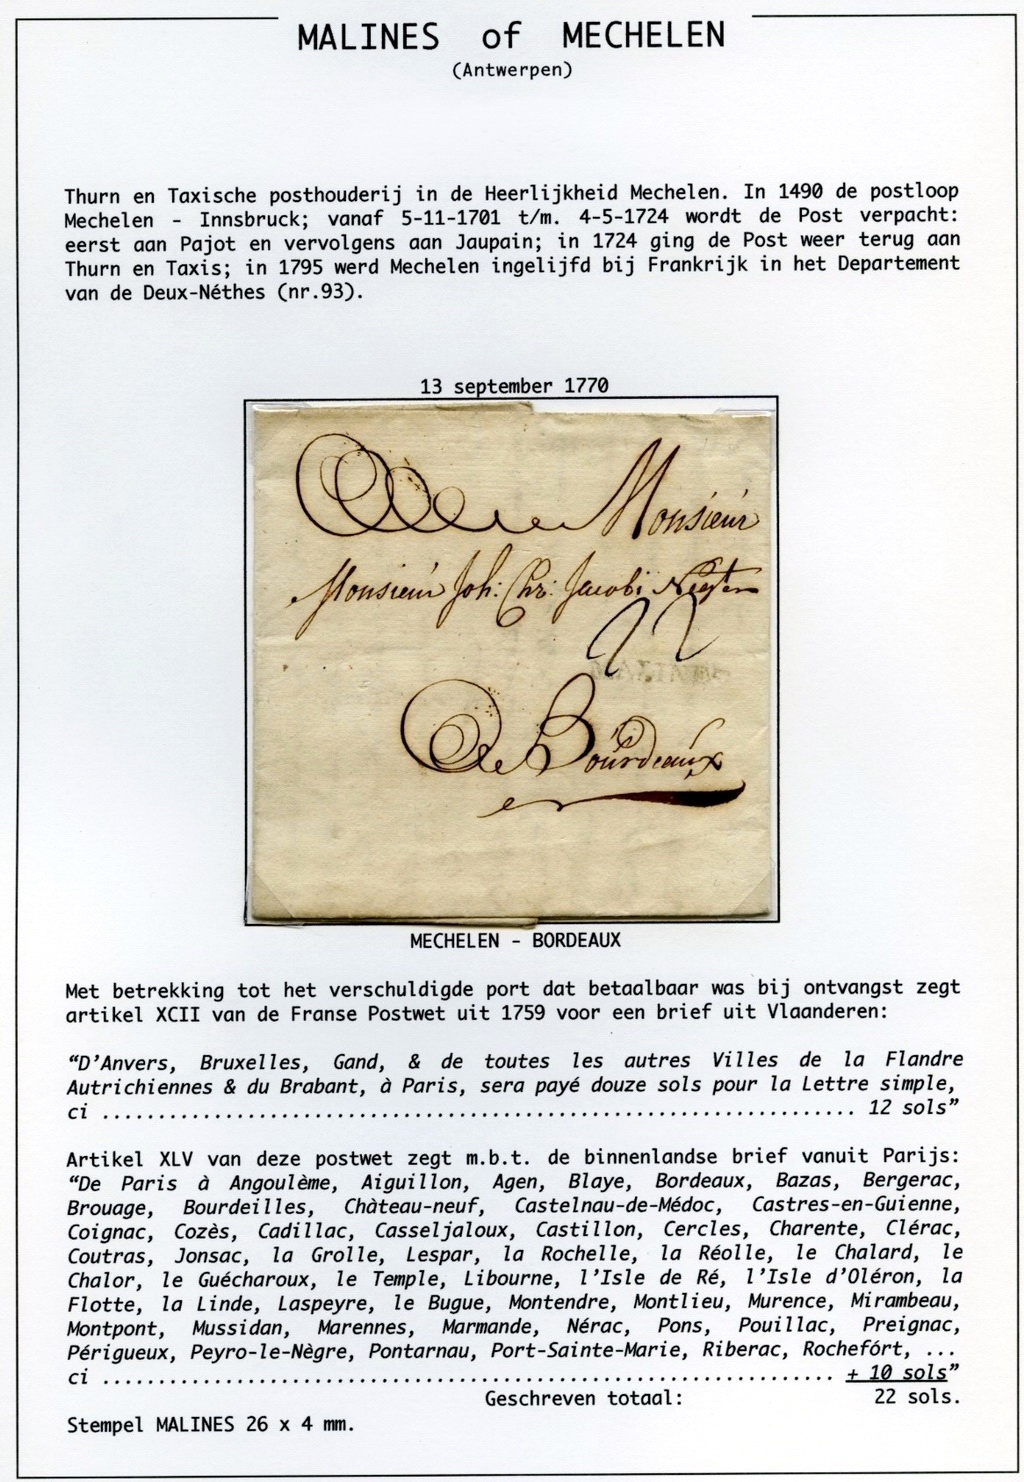 MALINES of MECHELEN
(Antwerpen)
Thurn en Taxische posthouderij in de Heerlijkheid Mechelen. In 1490 de postloop
Mechelen - Innsbruck; vanaf 5-11-1701 t/m. 4-5-1724 wordt de Post verpacht:
eerst aan Pajot en vervolgens aan Jaupain; in 1724 ging de Post weer terug aan
Thurn en Taxis; in 1795 werd Mechelen ingelijfd bij Frankrijk in het Departement
van de Deux-Néthes (nr.93).
13 september 1770
A Monsieur
Monsieur Joh: Chr: Jacobi
22
MALINES
Bourdeaux
MECHELEN - BORDEAUX
Met betrekking tot het verschuldigde port dat betaalbaar was bij ontvangst zegt
artikel XCII van de Franse Postwet uit 1759 voor een brief uit Vlaanderen:
“D’Anvers, Bruxelles, Gand, & de toutes les autres Villes de la Flandre
Autrichiennes & du Brabant, à Paris, sera payé douze sols pour la Lettre simple,
ci ................................................................... 12 sols”
Artikel XLV van deze postwet zegt m.b.t. de binnenlandse brief vanuit Parijs:
“De Paris à Angoulème, Aiguillon, Agen, Blaye, Bordeaux, Bazas, Bergerac,
Brouage, Bourdeilles, Chàteau-neuf, Castelnau-de-Médoc, Castres-en-Guienne,
Coignac, Cozès, Cadillac, Casseljaloux, Castillon, Cercles, Charente, Clérac,
Coutras, Jonsac, la Grolle, Lespar, la Rochelle, la Réolle, le Chalard, le
Chalor, le Guécharoux, le Temple, Libourne, l’Isle de Ré, l’Isle d’Oléron, la
Flotte, la Linde, Laspeyre, le Bugue, Montendre, Montlieu, Murence, Mirambeau,
Montpont, Mussidan, Marennes, Marmande, Nérac, Pons, Pouillac, Preignac,
Périgueux, Peyro-le-Nègre, Pontarnau, Port-Sainte-Marie, Riberac, Rochefórt, ...
ci ................................................................. + 10 sols”
Geschreven totaal: 22 sols.
Stempel MALINES 26 x 4 mm.